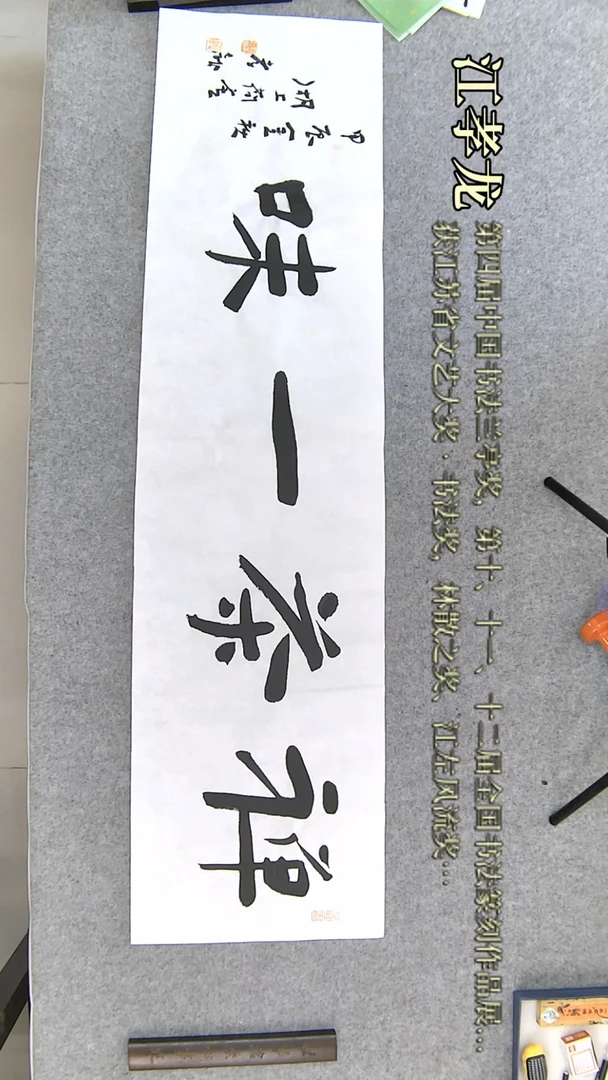 江孝龙
第四届中国书法兰亭奖，第十、十一、十二届全国书法篆刻作品展…
获江苏省文艺大奖·书法奖，林散之奖、江左风流奖…
禅茶一味
甲辰